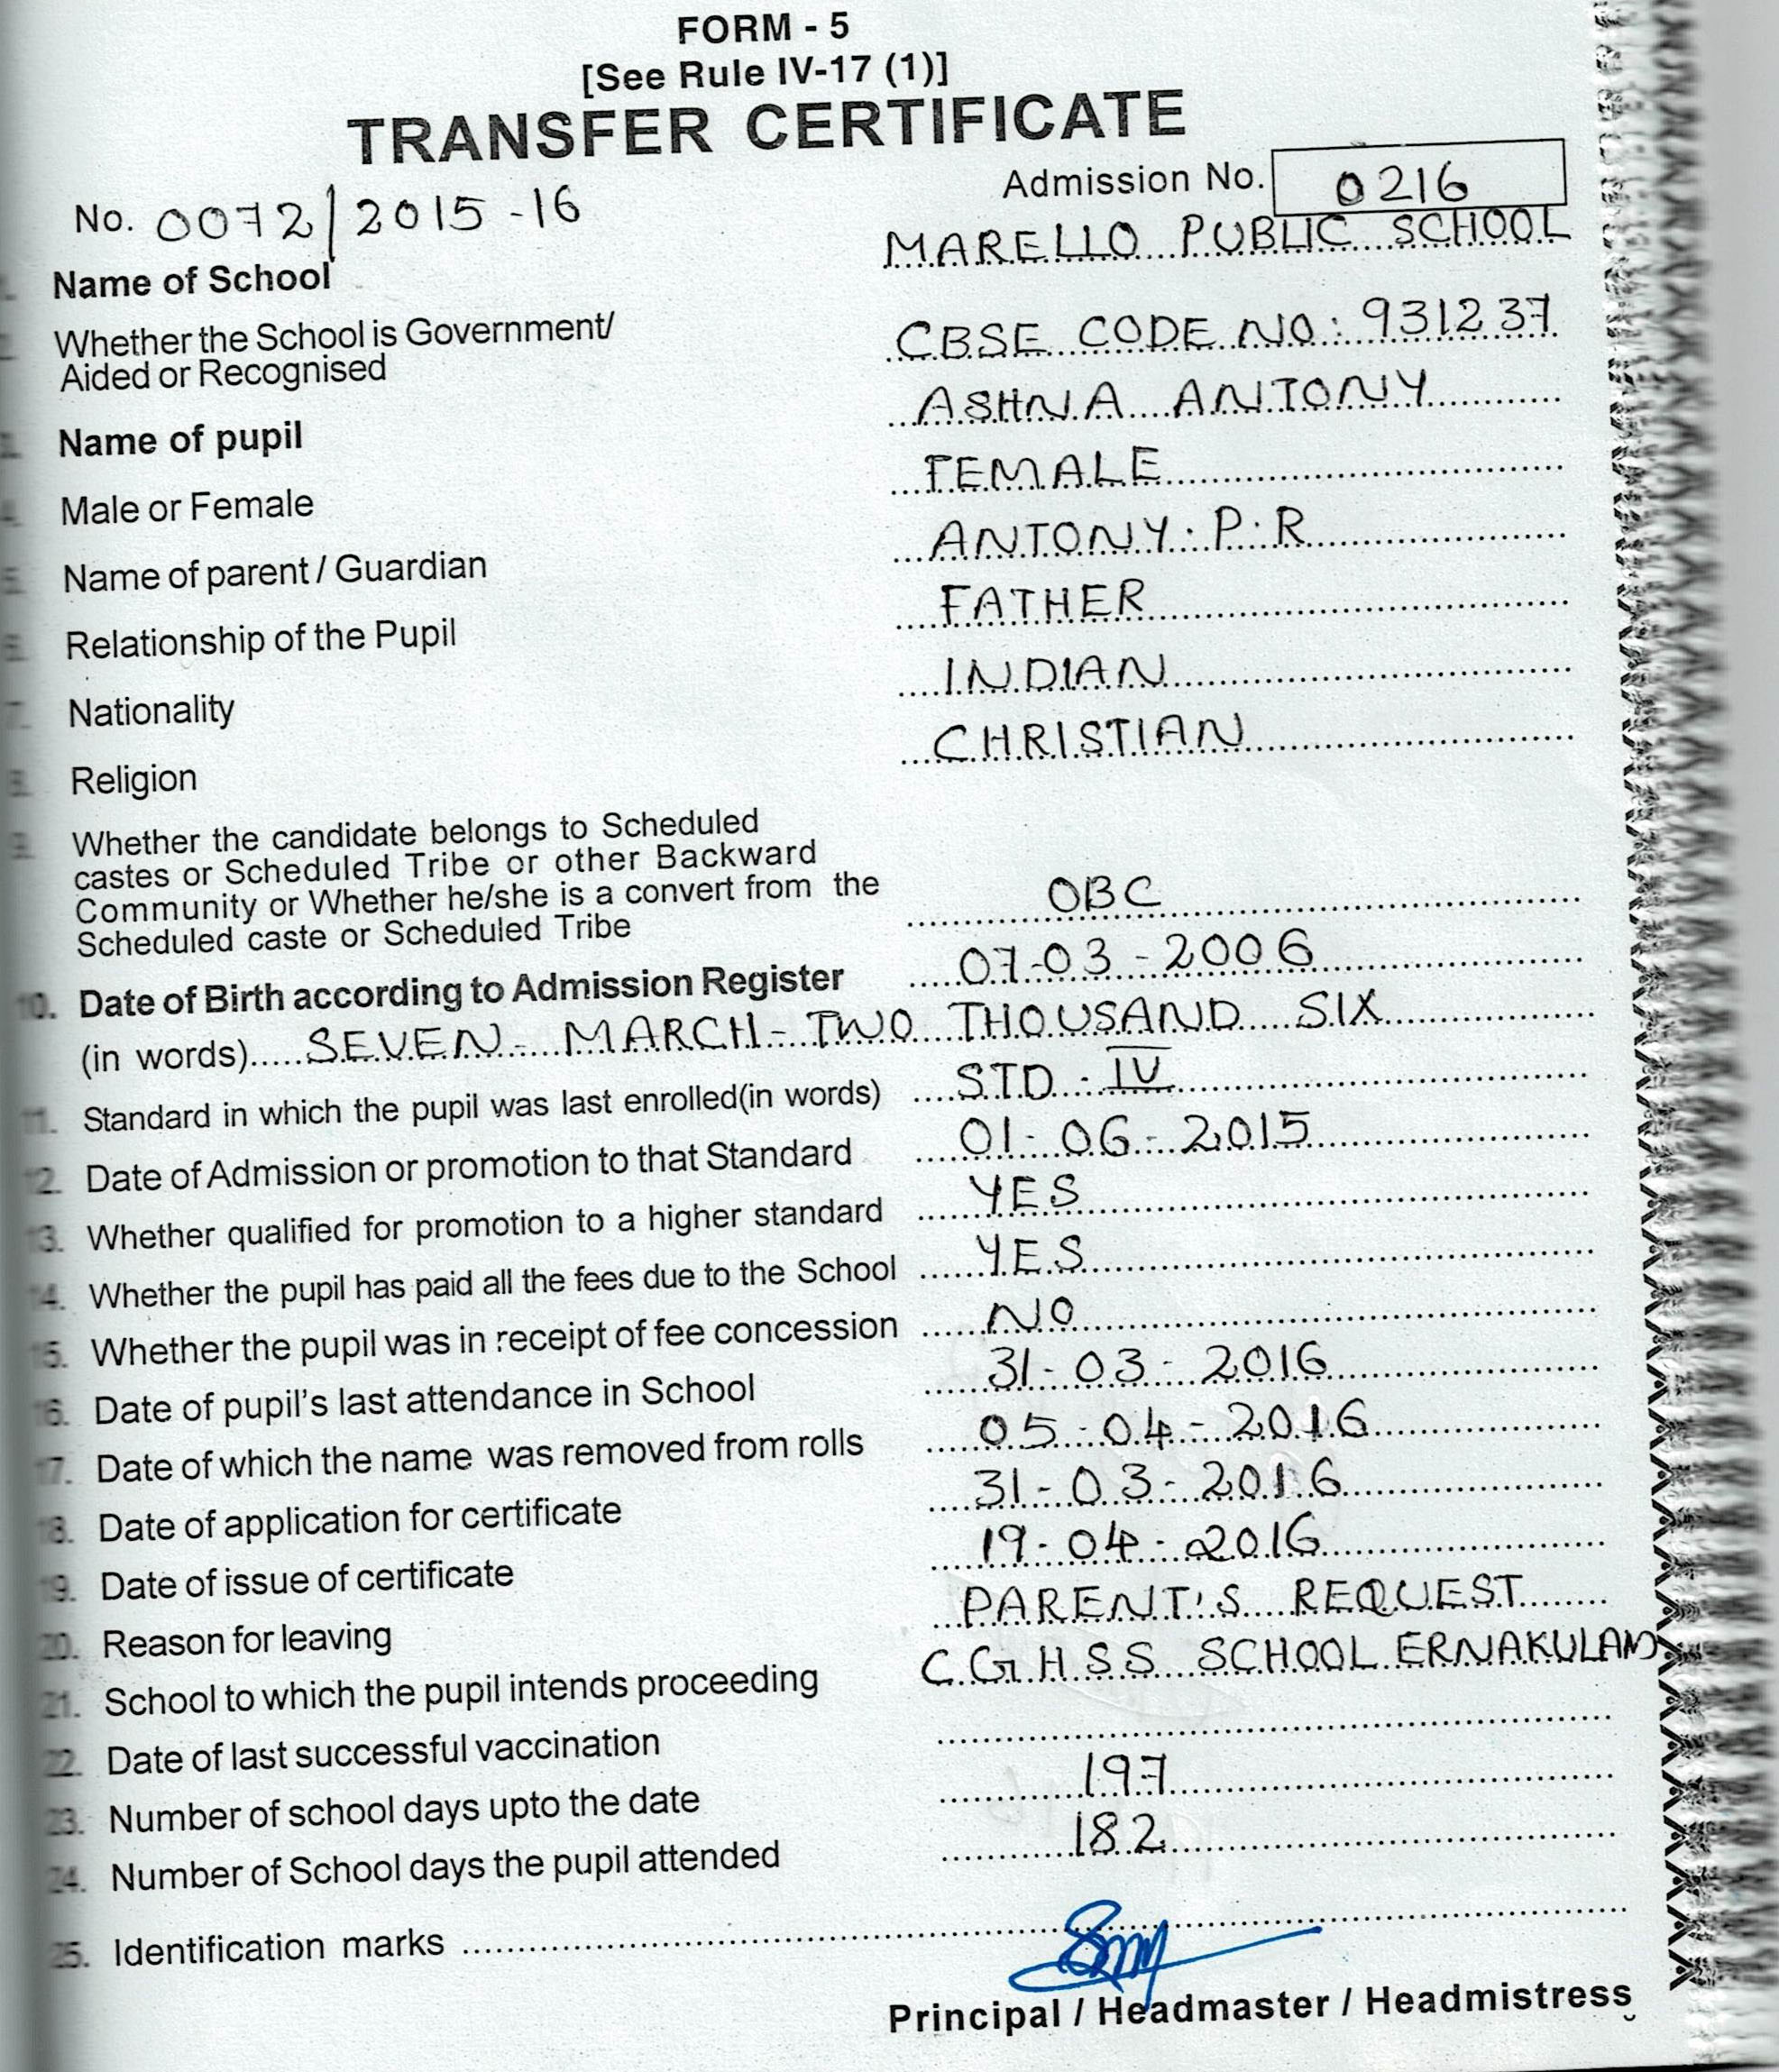 FORM - 5
[See Rule IV-17 (1)]
TRANSFER CERTIFICATE
No. 0072/2015-16 Admission No. 0216
Name of School MARELLO PUBLIC SCHOOL
Whether the School is Government/
Aided or Recognised CBSE CODE NO: 931237
Name of pupil ASHNA ANTONY
Male or Female FEMALE
Name of parent / Guardian ANTONY.P.R
Relationship of the Pupil FATHER
7. Nationality INDIAN
Religion CHRISTIAN
9. Whether the candidate belongs to Scheduled
castes or Scheduled Tribe or other Backward
Community or Whether he/she is a convert from the
Scheduled caste or Scheduled Tribe OBC
10. Date of Birth according to Admission Register 07-03-2006
(in words) SEVEN - MARCH - TWO THOUSAND SIX
11. Standard in which the pupil was last enrolled(in words) STD - IV
12. Date of Admission or promotion to that Standard 01-06-2015
13. Whether qualified for promotion to a higher standard YES
14. Whether the pupil has paid all the fees due to the School YES
15. Whether the pupil was in receipt of fee concession NO
16. Date of pupil's last attendance in School 31-03-2016
17. Date of which the name was removed from rolls 05-04-2016
18. Date of application for certificate 31-03-2016
19. Date of issue of certificate 19-04-2016
20. Reason for leaving PARENT'S REQUEST
21. School to which the pupil intends proceeding C.G.H.S.S SCHOOL ERNAKULAM
22. Date of last successful vaccination
23. Number of school days upto the date 197
24. Number of School days the pupil attended 182
25. Identification marks
Principal / Headmaster / Headmistress